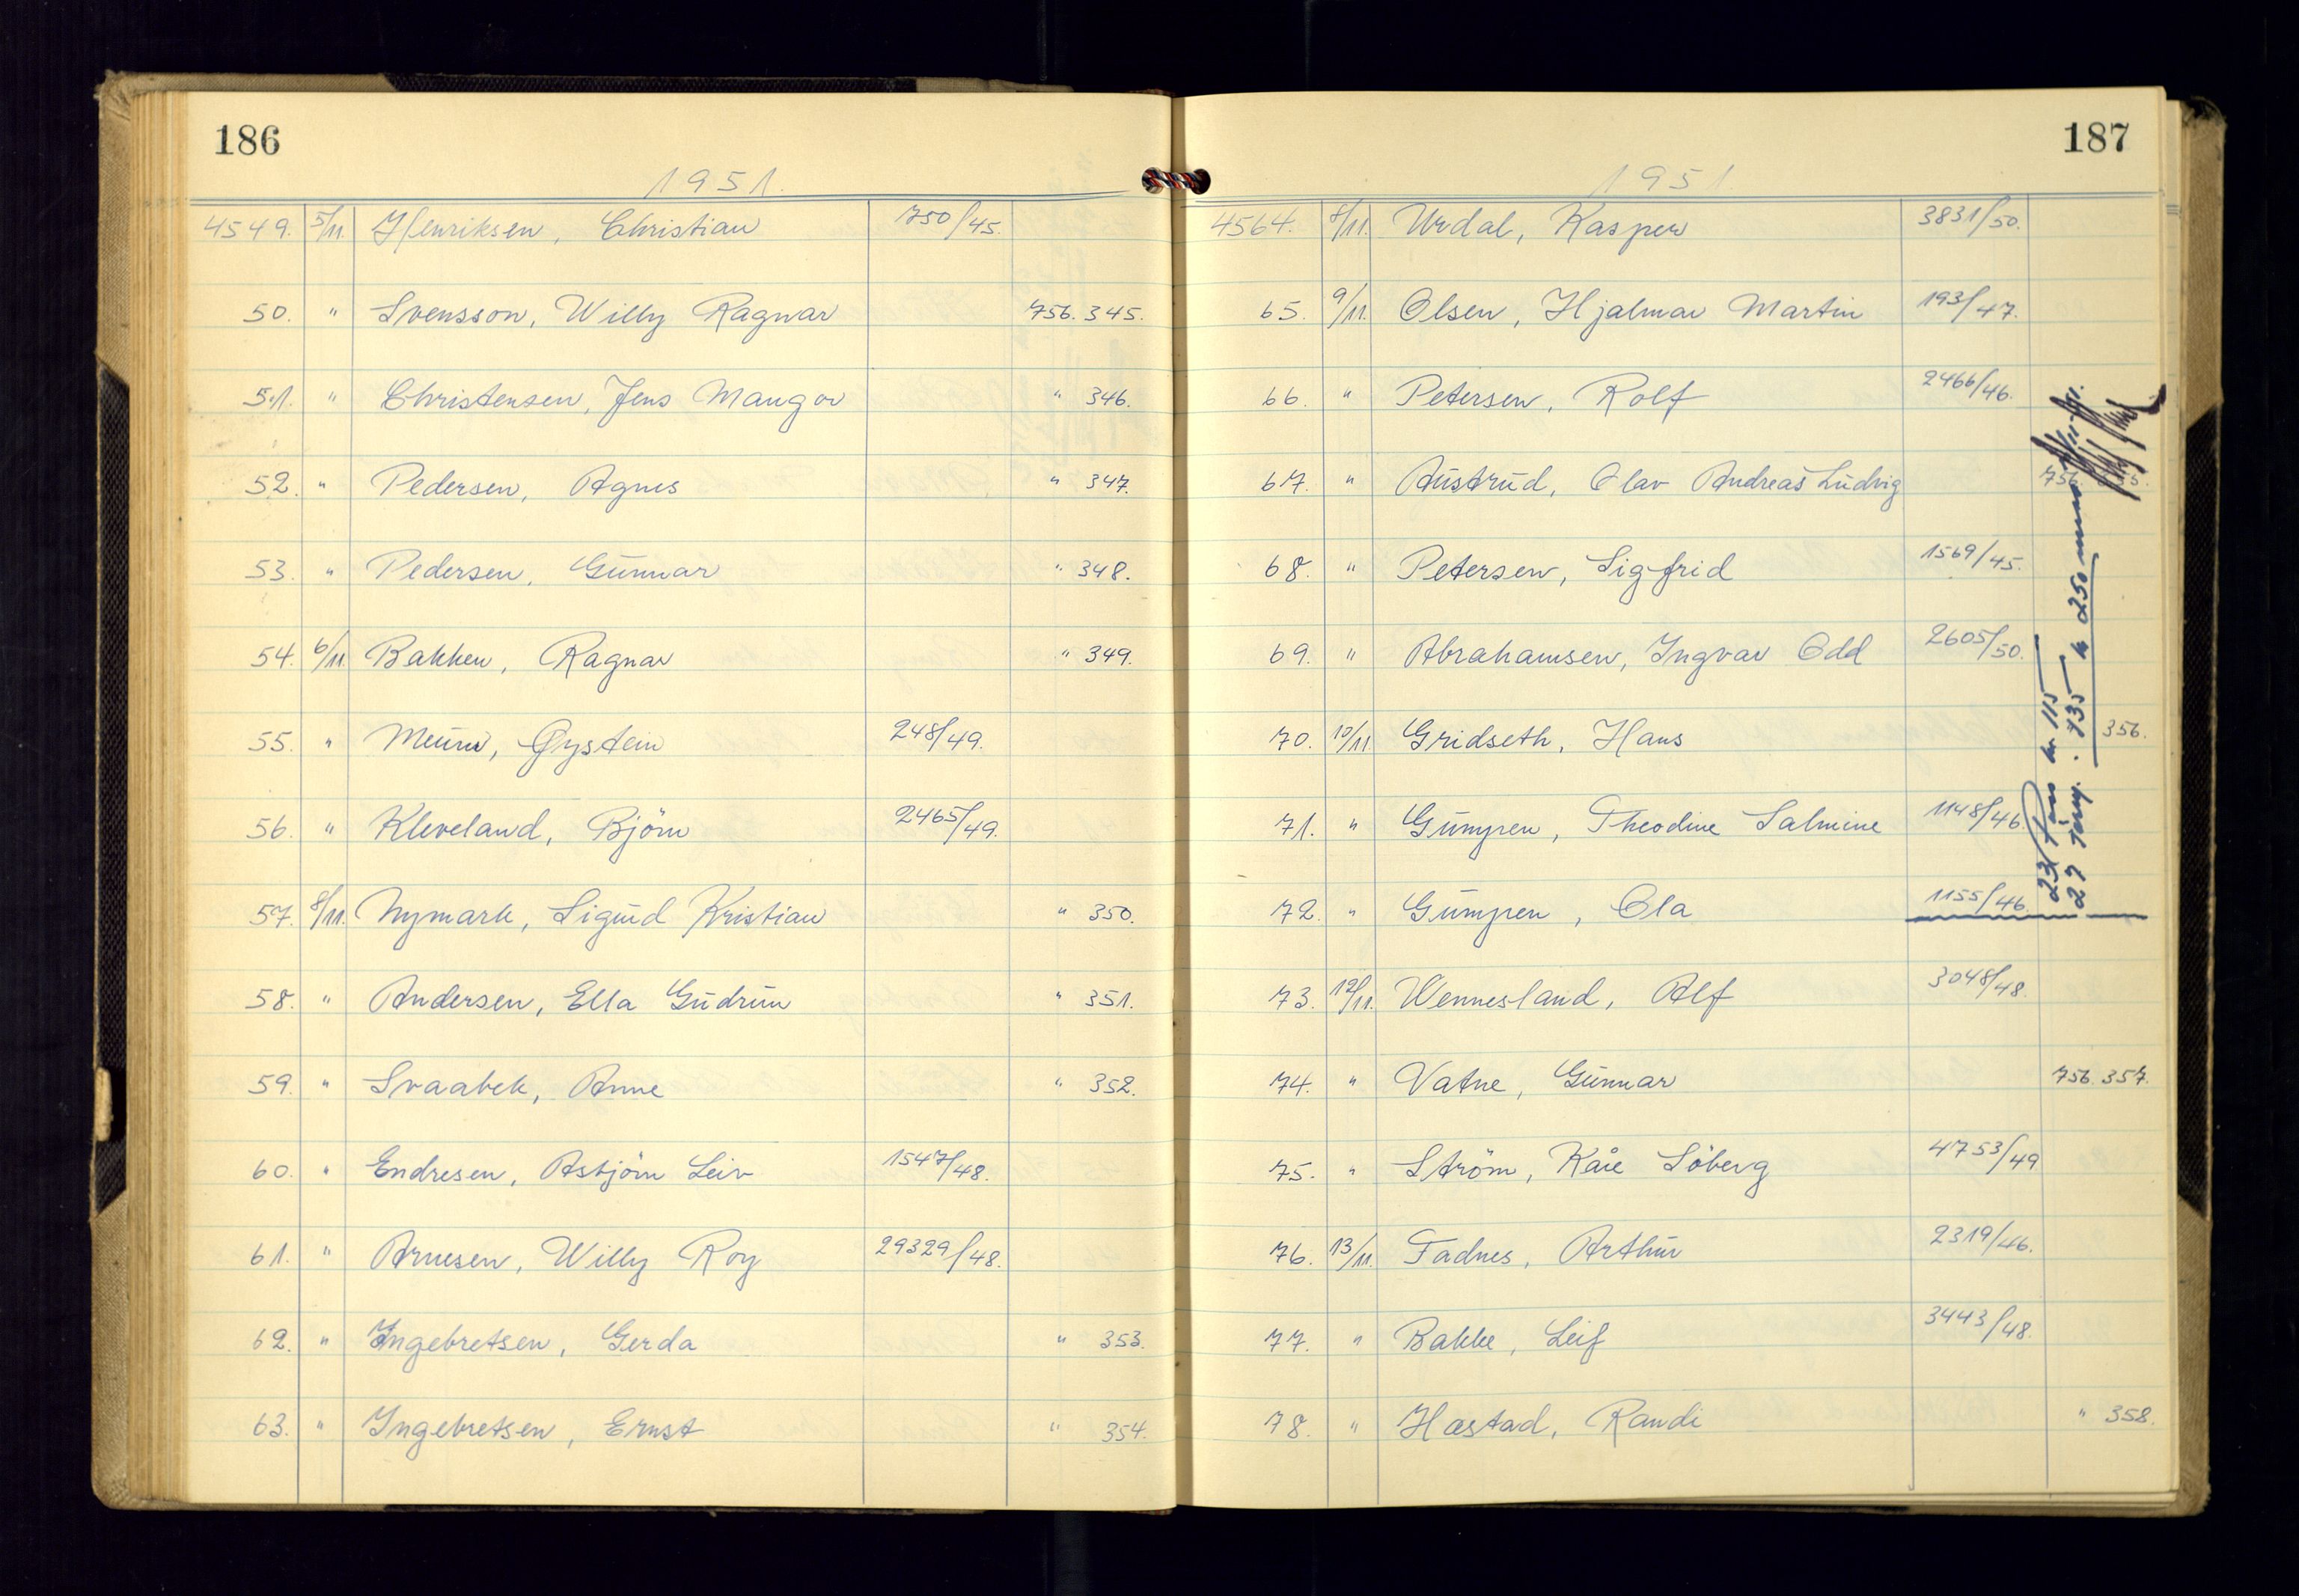 186
1951.
4549. 5/11. Henriksen, Christian 750/45.
50. " Svensson, Willy Ragnar 756.345.
51. " Christensen, Jens Mangor " 346.
52. " Pedersen, Agnes " 347.
53. " Pedersen, Gunnar " 348.
54. 6/11 Bakken, Ragnar " 349.
55. " Meum, Øystein 248/49.
56. " Kleveland, Björn 2465/49.
57. 8/11. Nymark, Sigurd Kristian " 350.
58. " Andersen, Ella Gudrun " 351.
59. " Svaabek, Anne " 352.
60. " Endresen, Asbjörn Leiv 1547/48.
61. " Arnesen, Willy Roy 29329/48.
62. " Ingebretsen, Gerda " 353.
63. " Ingebretsen, Ernst " 354.
187
1951
4564. 8/11. Urdal, Kasper 3831/50.
65. 9/11. Olsen, Hjalmar Martin 193/47.
66. " Petersen, Rolf 2466/46.
67. " Austrud, Olav Andreas Ludvig 756.
68. " Petersen, Sigfrid 1569/45.
69. " Abrahamsen, Ingvar Odd 2605/50.
70. 10/11 Gridseth, Hans 356.
71. " Gumpen, Theodine Salmine 1148/46
72. " Gumpen, Ola 1155/46.
73. 12/11. Wennesland, Alf 3048/48.
74. " Vatne, Gunnar 756.357.
75. " Ström, Kåre Söberg 4753/49
76. 13/11. Fadnes, Arthur 2319/46.
77. " Bakke, Leif 3443/48.
78. " Hæstad, Randi " 358.
23 Pass kr 115
27 . 135 kr 250